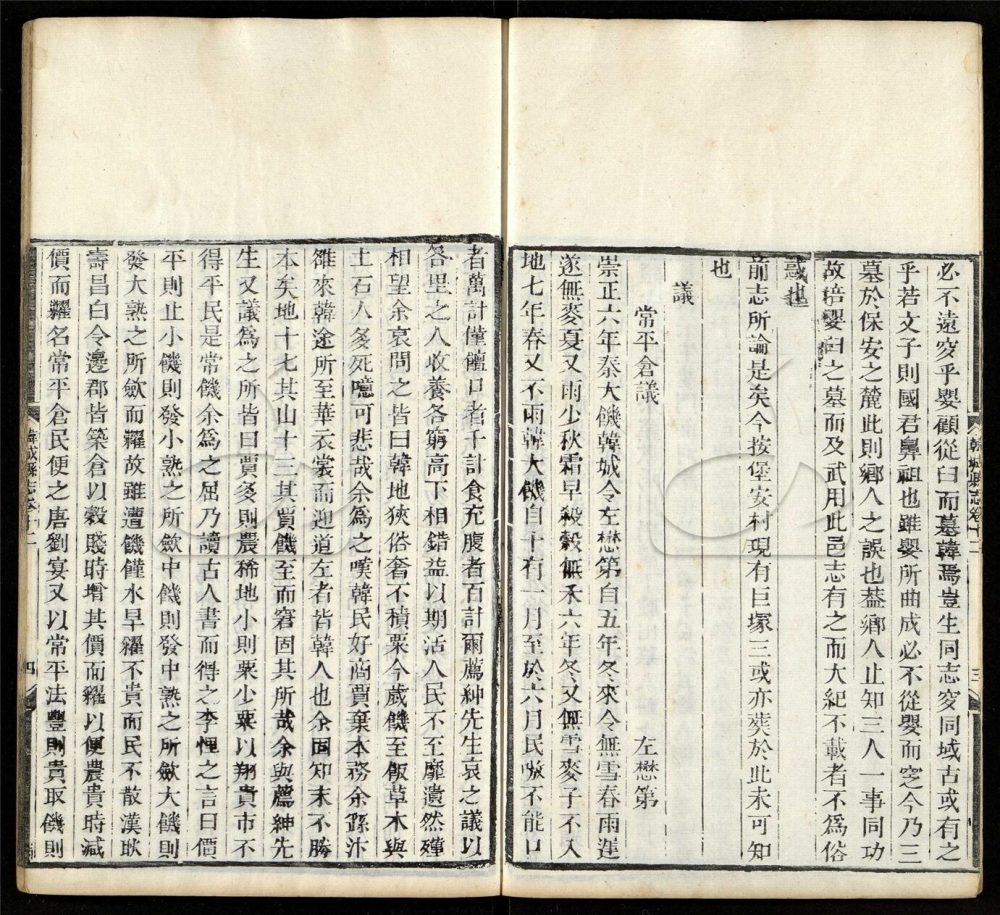 必不遠窆乎嬰顧從臼而墓韓焉豈生同志窆同域古或有之
乎若文子則國君鼻祖也雖嬰所曲成必不從嬰而窆今乃三
墓於保安之麓此則鄉人之誤也葢鄉人止知三人一事同功
故培嬰臼之墓而及武用此邑志有之而大紀不載者不爲俗
惑也
前志所論是矣今按堡安村現有巨塚三或亦葬於此未可知
也
議
常平倉議
左懋第
崇正六年秦大饑韓城令左懋第自五年冬來令無雪春雨遲
遂無麥夏又雨少秋霜早殺穀無禾六年冬又無雪麥子不入
地七年春又不雨韓大饑自十有一月至於六月民啖不能口
韓城縣志卷十二
三
者萬計僅饘口者千計食充腹者百計爾薦紳先生哀之議以
各里之人收養各窮高下相錯益以期活人民不至靡遺然殣
相望余哀問之皆曰韓地狹俗奢不積粟今歲饑至飯草木與
土石人多死噫可悲哉余爲之嘆韓民好商賈棄本務余繇汴
雒來韓途所至華衣裳而迎道左者皆韓人也余固知末不勝
本矣地十七其山十三其賈饑至而窘固其所哉余與薦紳先
生又議爲之所皆曰賈多則農稀地小則粟少粟以翔貴市不
得平民是常饑余爲之屈乃讀古人書而得之李悝之言曰價
平則止小饑則發小熟之所歛中饑則發中熟之所歛大饑則
發大熟之所歛而糶故雖遭饑僅水旱糶不貴而民不散漢耿
壽昌白令邊郡皆築倉以穀賤時增其價而糴以便農貴時減
價而糶名常平倉民便之唐劉宴又以常平法豐則貴取饑則
韓城縣志卷十二
四